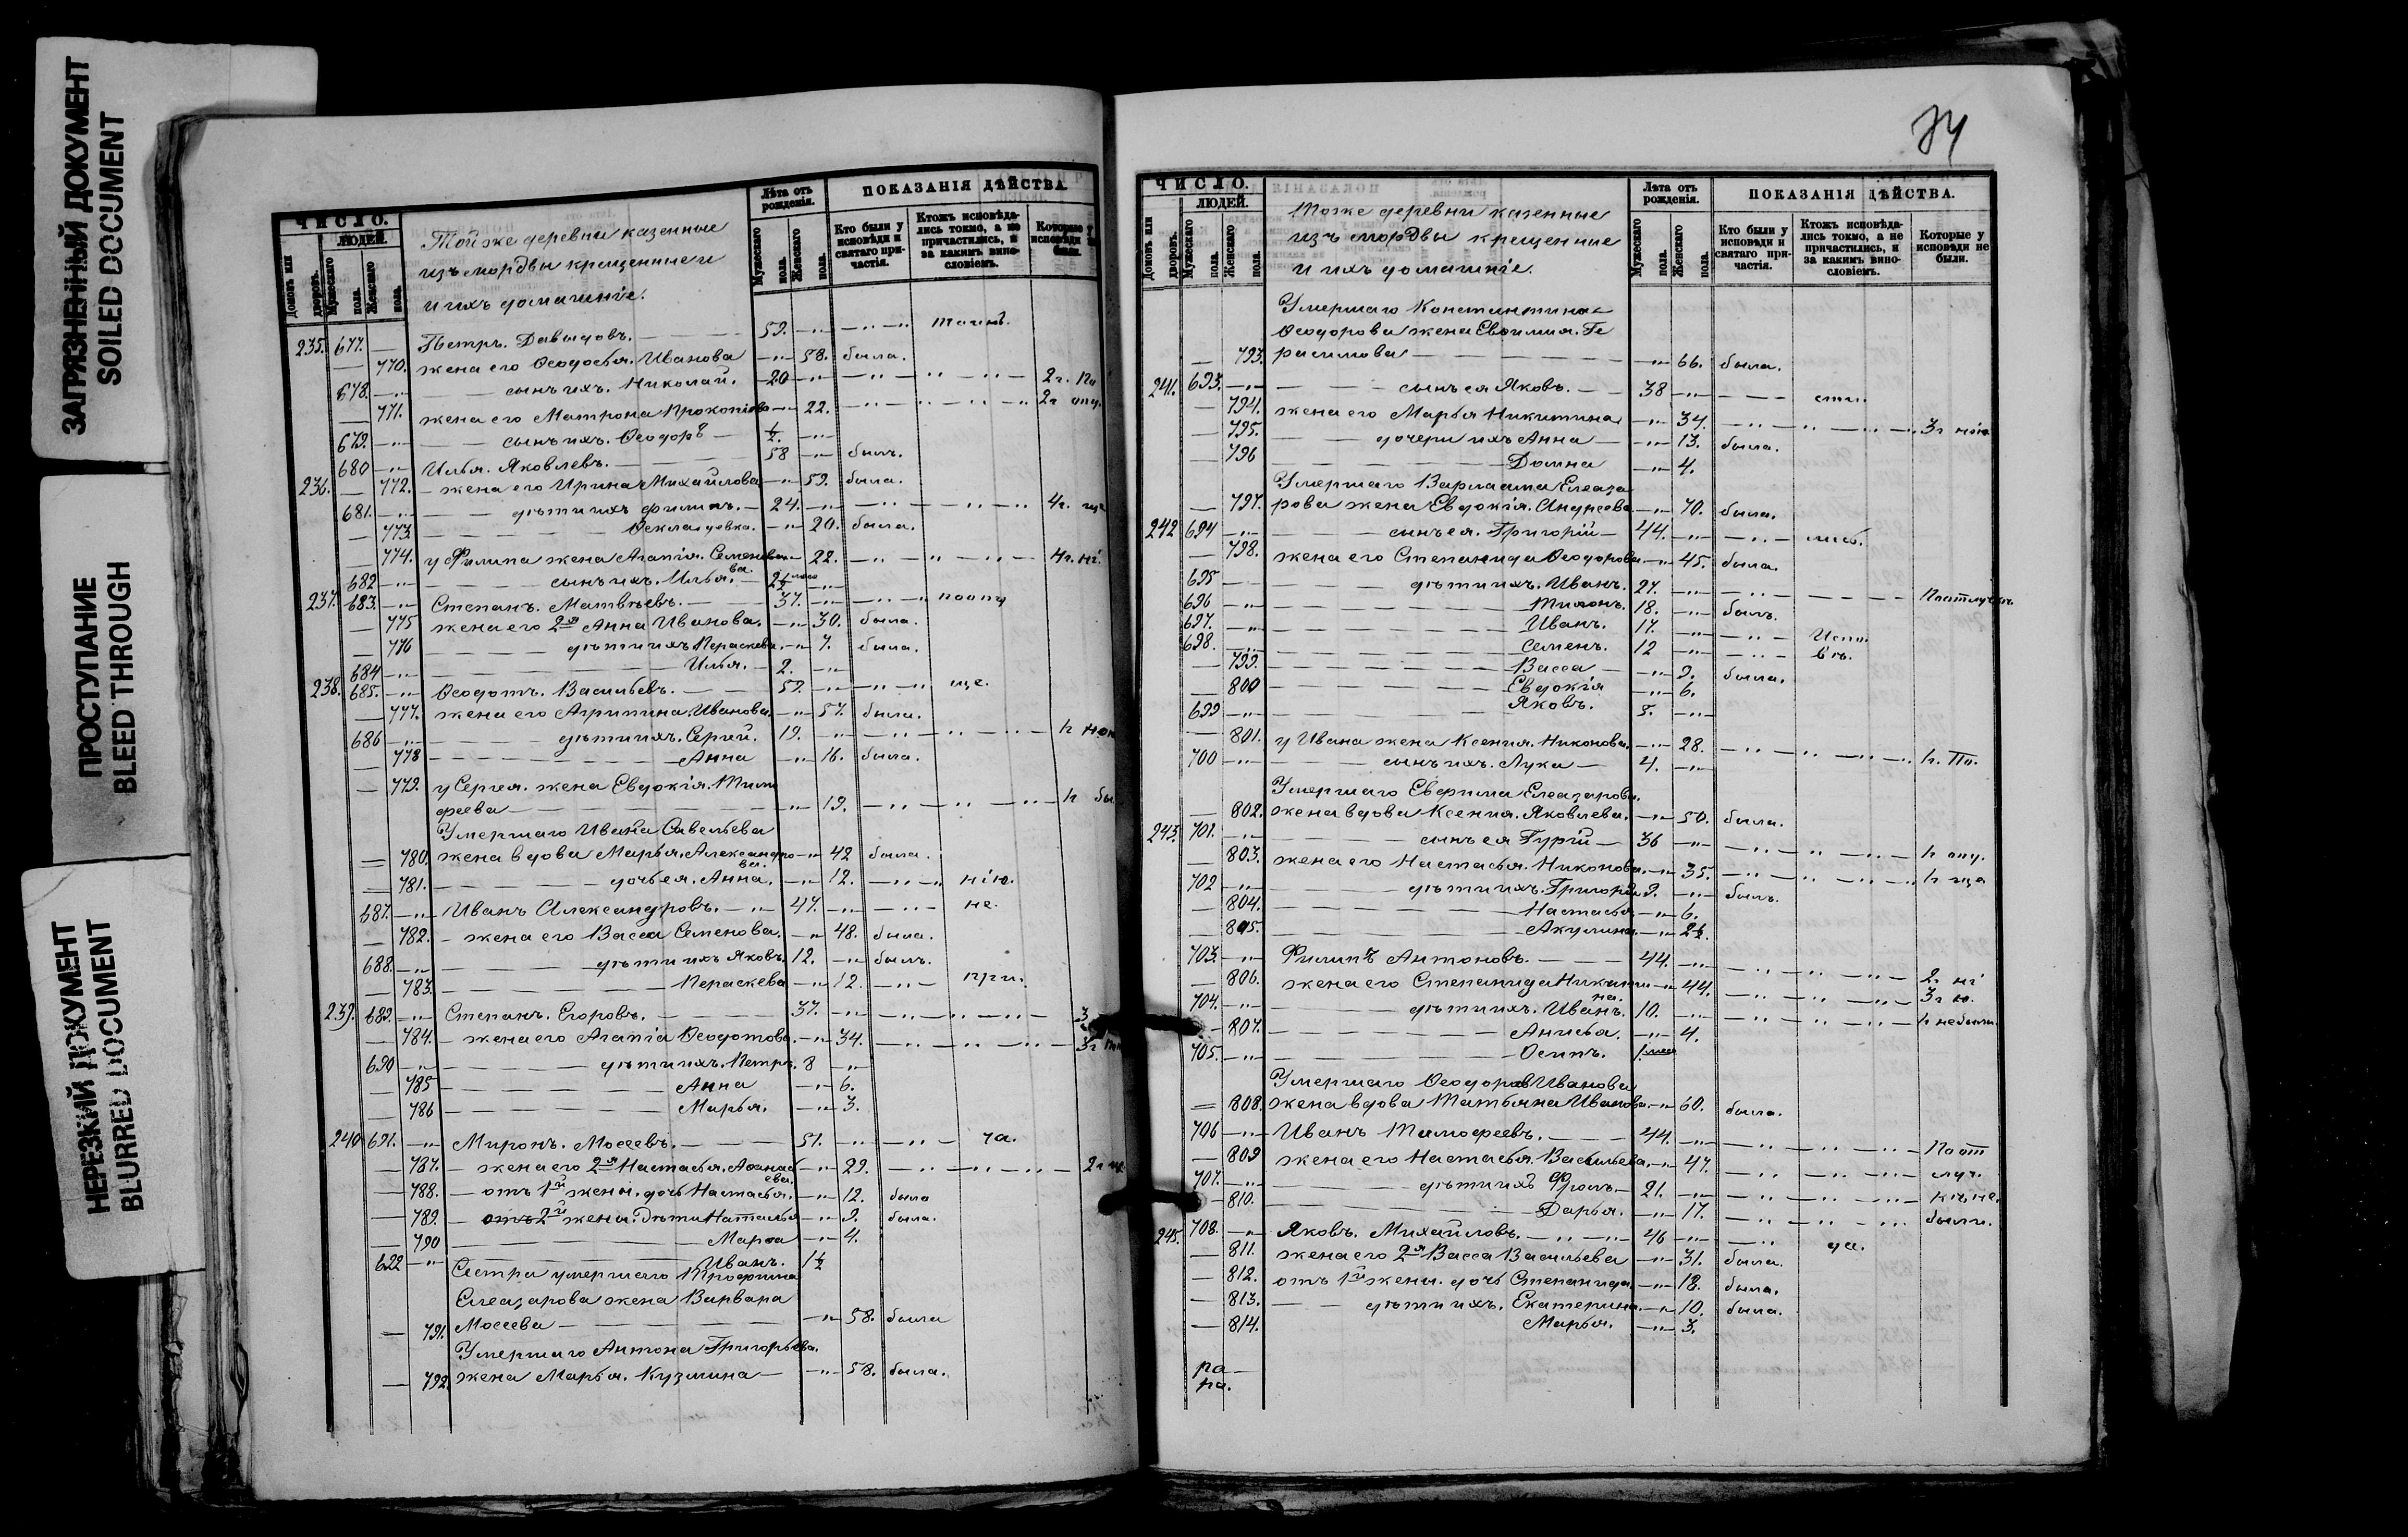 ЗАГРЯЗНЕННЫЙ ДОКУМЕНТ
SOILED DOCUMENT
ПРОСТУПАНИЕ
BLEED THROUGH
НЕРЕЗКИЙ ДОКУМЕНТ
BLURRED DOCUMENT
ЧИСЛО.
ЛЮДЕЙ.
Домовъ или дворовъ.
Мужескаго пола.
Женскаго пола.
Той же деревни казенные
изъ мордвы крещенные и
и ихъ домашніе.
Лѣта отъ рожденія.
Мужескаго пола.
Женскаго пола.
ПОКАЗАНІЯ ДѢЙСТВА.
Кто были у исповѣди и святаго причастія.
Ктожъ исповѣдались токмо, а не причастились, и за какимъ винословіемъ.
Которые у исповѣди не были.
235. 677. — Петръ. Давыдовъ. 59.
— 770. жена его Ѳеодосья. Иванова 58. была.
678. сынъ ихъ. Николай. 20
— 771. жена его Матрона Прокопіева 22.
679. сынъ ихъ. Ѳеодоръ ½.
680 Илья. Яковлевъ. 58 былъ.
236. — 772. жена его Ирина Михайлова 59. была.
681. дѣти ихъ Филипъ. 24.
— 773. Ѳекла дѣвка. 20. была.
— 774. у Филипа жена Агапія. Семенова 22.
682 сынъ ихъ. Илья.
237. 683. Степанъ. Матвѣевъ. 37.
— 775 жена его 2я Анна Иванова. 30. была.
— 776 дѣти ихъ Пераскева 7. была.
684 Илья. 2.
238. 685. Ѳеодотъ. Васильевъ. 59.
— 777. жена его Агрипина. Иванова 57. была.
686 дѣти ихъ. Сергей. 19.
— 778 Анна 16. была.
— 779. у Сергея. жена Евдокія. Тимо
феева 19.
Умершаго Ивана Савельева
— 780. жена вдова Марья. Александро 42 была.
ва.
— 781. дочь ея. Анна. 12.
687. Иванъ Александровъ. 47. не.
— 782. жена его Васса Семенова. 48. была.
688. дѣти ихъ Яковъ. 12. былъ.
— 783. Пераскева 12. при.
239. 689. Степанъ. Егоровъ. 37.
— 784. жена его Агапіа Ѳеодотова. 34.
690 дѣти ихъ. Петръ. 8
— 785 Анна 6.
— 786 Марья. 3.
240 691. Миронъ. Моссевъ. 51. ча.
— 787. жена его 2я Настасья. Аѳанась 29.
ева.
— 788. отъ 1й жены. дочь Настасья. 12. была
— 789. отъ 2й жены. дѣти Наталья 9. была.
— 790 Марѳа 4.
622 Иванъ. 1½
Сестра умершаго Трофима
Елеазарова жена Варвара
— 791. Моссева 58. была
Умершаго Антона Григорьева.
— 792. жена Марья. Кузмина 58. была.
74
ЧИСЛО.
ЛЮДЕЙ.
Домовъ или дворовъ.
Мужескаго пола.
Женскаго пола.
Тоже деревни казенные
изъ мордвы крещенные
и ихъ домашніе.
Лѣта отъ рожденія.
Мужескаго пола.
Женскаго пола.
ПОКАЗАНІЯ ДѢЙСТВА.
Кто были у исповѣди и святаго причастія.
Ктожъ исповѣдались токмо, а не причастились, и за какимъ винословіемъ.
Которые у исповѣди не были.
Умершаго Константина
Ѳеодорова жена Евѳимия. Ге
— 793. расимова 66. была.
241. 693. сынъ ея Яковъ. 38
— 794. жена его Марья Никитина 34.
— 795. дочери ихъ Анна 13. была.
— 796 Домна 4.
Умершаго Варлаама Елеаза
— 797. рова жена Евдокія. Андреева 70. была.
242 694 сынъ ея. Григорій 44.
— 798. жена его Степанида Ѳеодорова 45. была.
695 дѣти ихъ. Иванъ. 27.
696 Тихонъ. 18. былъ.
697. Иванъ. 17.
698. Семенъ. 12
— 799. Васса 9. была.
— 800 Евдокія 6.
699 Яковъ.
— 801. у Ивана жена Ксения. Никонова. 28.
700 сынъ ихъ. Лука 4.
Умершаго Евфима Елеазарова.
— 802. жена вдова Ксения. Яковлева. 50. была.
243. 701. сынъ ея Гурій 36
— 803. жена его Настасья. Никонова 35.
702 дѣти ихъ. Григорій 9. былъ.
— 804. Настасья 6.
— 805. Акулина. 2½.
703. Филипъ Антоновъ. 44.
— 806. жена его Степанида Никити 44.
на.
704. дѣти ихъ. Иванъ. 10.
— 807. Анисья. 4.
705. Осипъ.
Умершаго Ѳеодора Иванова
— 808. жена вдова Татьяна Иванова. 60. была.
706 Иванъ Тимофеевъ. 44.
— 809 жена его Настасья. Васильева. 47.
707. дѣти ихъ Фролъ 21.
— 810. Дарья. 17.
245. 708. Яковъ. Михайловъ. 46
— 811. жена его 2я Васса Васильева 31. была.
— 812. отъ 1й жены. дочь Степанида. 18. была.
— 813. дѣти ихъ. Екатерина. 10. была.
— 814. Марья. 3.